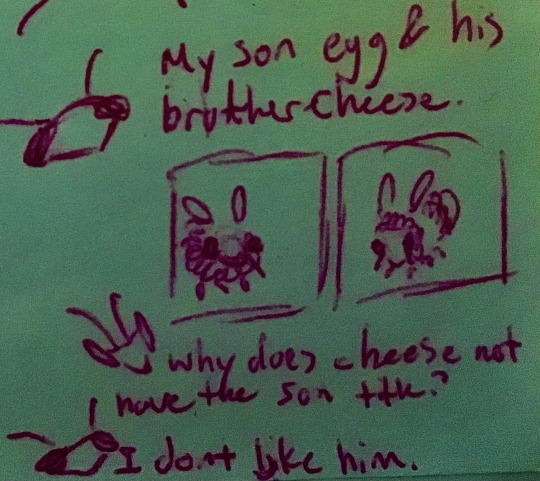 My son egg & his
brother cheese.
why does cheese not
have the son title?
I dont like him.